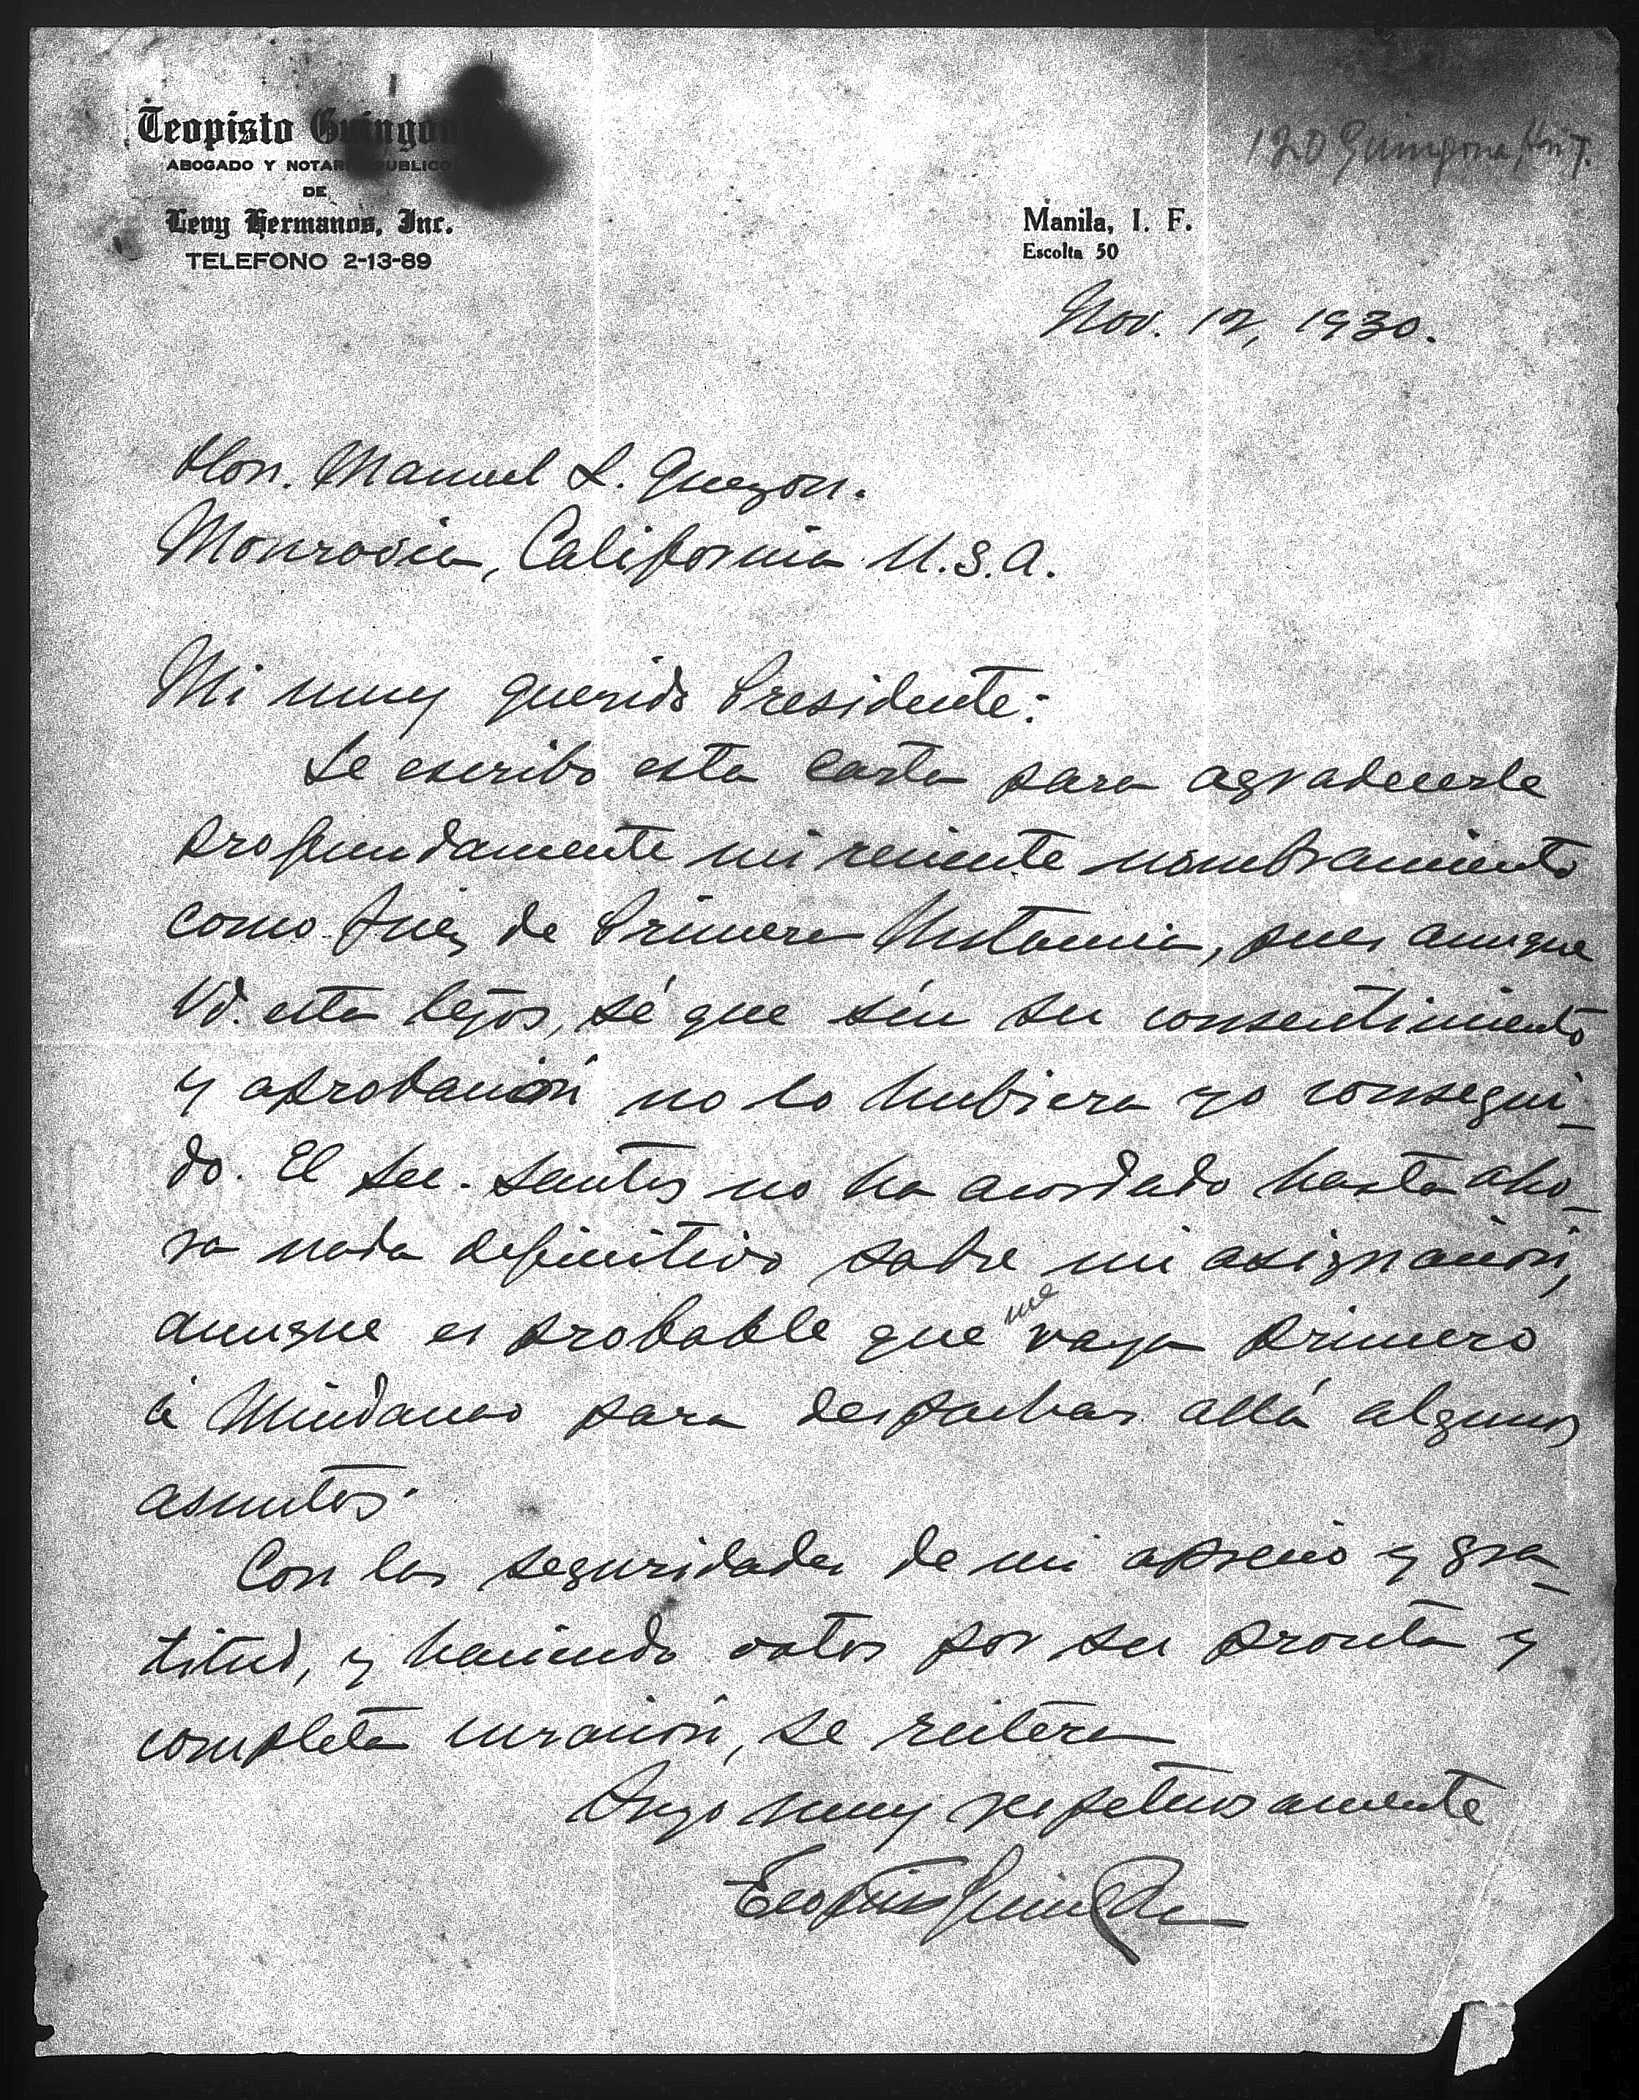 Teopisto Guingona
ABOGADO Y NOTARIO PUBLICO
DE
Levy Hermanos, Inc.
TELEFONO 2-13-89
120 Guingona, Hon T.
Manila, I. F.
Escolta 50
Nov. 12, 1930.
Hon. Manuel L. Quezon.
Monrovia, California U.S.A.
Mi muy querido Presidente:
Le escribo esta carta para agradecerle
profundamente mi reciente nombramiento
como Juez de Primera Instancia, pues aunque
Vd. esta lejos, sé que sin su consentimiento
y aprobación no lo hubiera yo consegui-
do. El Sec. Santos no ha acordado hasta aho-
ra nada definitivo sobre mi asignación,
aunque es probable que me vaya primero
á Mindanao para despachar allá algunos
asuntos.
Con las seguridades de mi aprecio y gra-
titud, y haciendo votos por su pronta y
completa curación, se reitera
Suyo muy respetuosamente
Teopisto Guingona